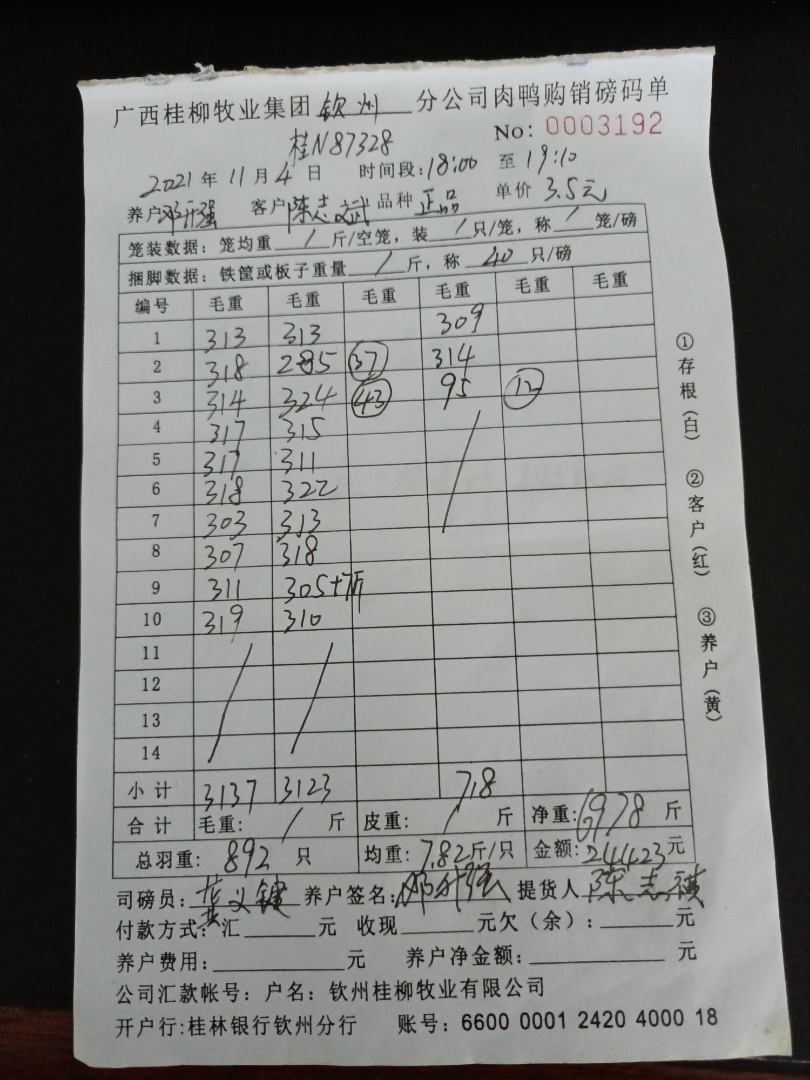 广西桂柳牧业集团 钦州 分公司肉鸭购销磅码单
桂N87328 No: 0003192
2021 年 11 月 4 日 时间段: 18:00 至 19:10
养户 邓升强 客户 陈志斌 品种 正品 单价 3.5元
笼装数据: 笼均重 / 斤/空笼, 装 / 只/笼, 称 / 笼/磅
捆脚数据: 铁筐或板子重量 / 斤, 称 40 只/磅
编号 毛重 毛重 毛重 毛重 毛重 毛重
1 313 313 309
2 318 285 37 314
3 314 324 43 95 12
4 317 315 /
5 317 311
6 318 322
7 303 313
8 307 318
9 311 305+7斤
10 319 310
11 / /
12
13
14
小计 3137 3123 718
合计 毛重: / 斤 皮重: / 斤 净重: 6978 斤
总羽重: 892 只 均重: 7.82斤/只 金额: 24423元
司磅员: 黄义键 养户签名: 邓升强 提货人 陈志祺
付款方式: 汇 元 收现 元欠(余): 元
养户费用: 元 养户净金额: 元
公司汇款帐号: 户名: 钦州桂柳牧业有限公司
开户行:桂林银行钦州分行 账号: 6600 0001 2420 4000 18
①存根(白) ②客户(红) ③养户(黄)